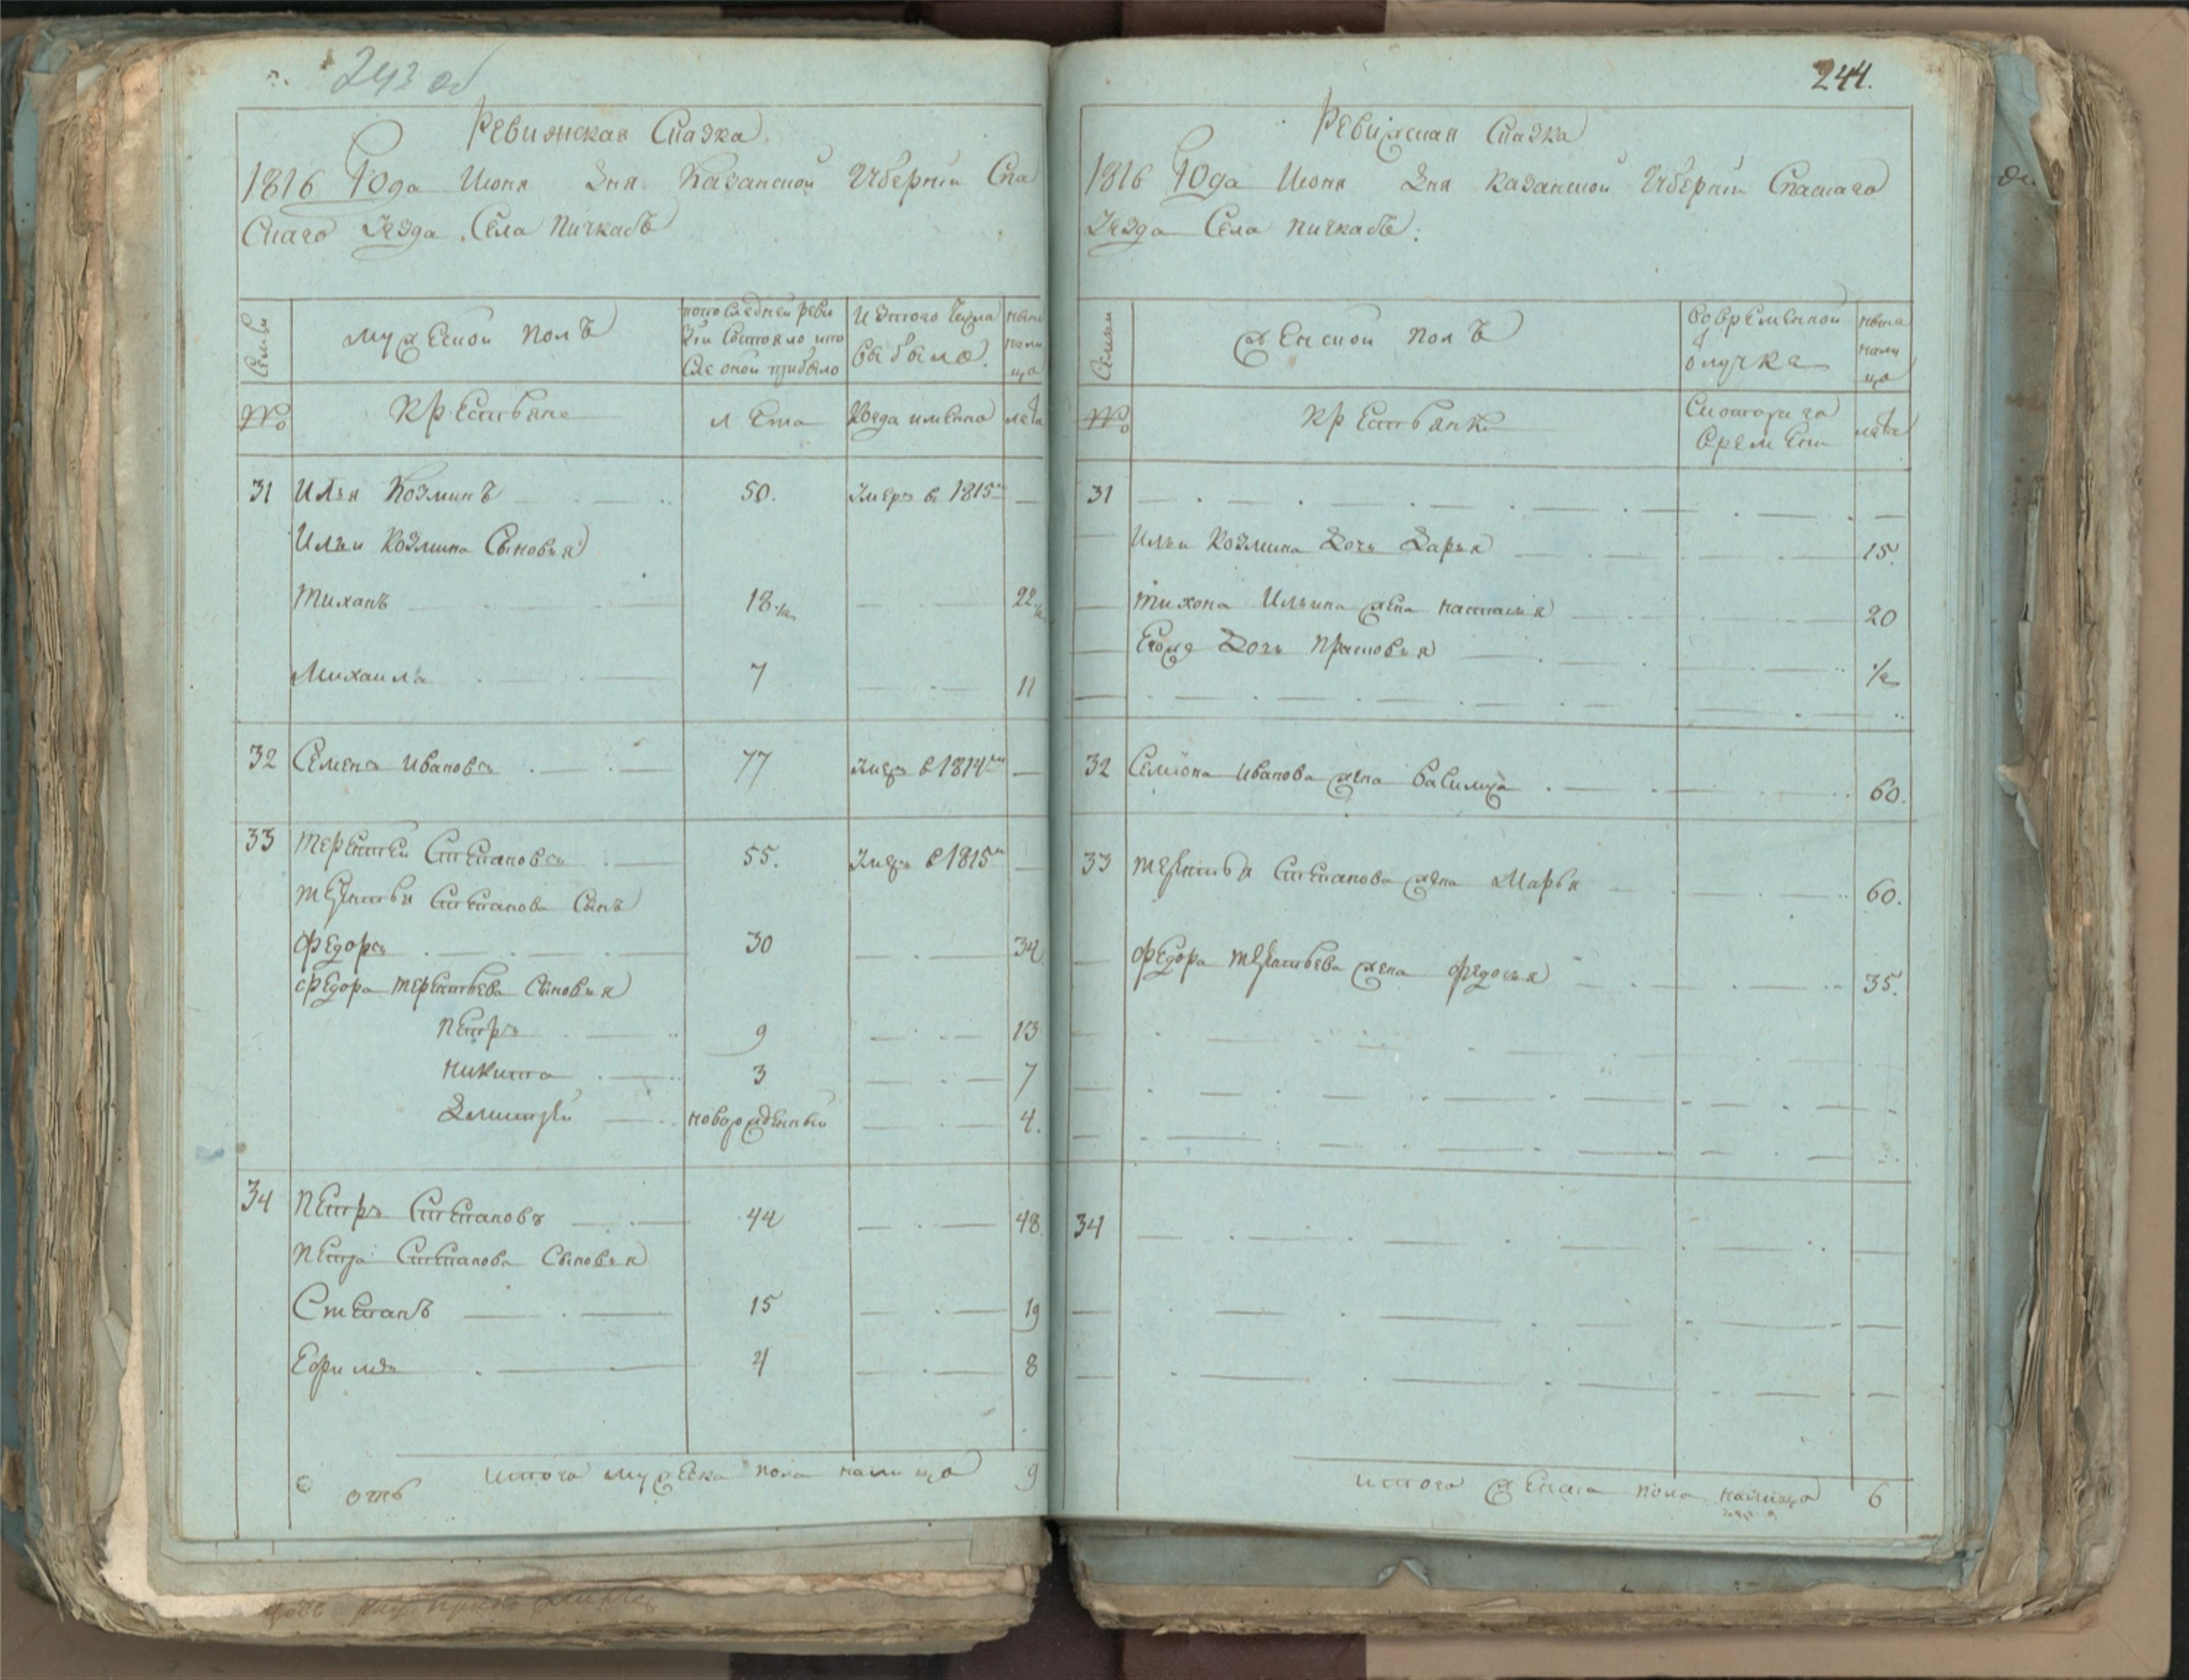 243 об
Ревижская Сказка
1816 Года Июня Дня Казанской Губернiи Спа
Скаго Уезда Села Пичкасъ
Семьи
Мужеской полъ
попоследней реви
зiи состояло ипо
сле оной прибыло
Изтого числа
выбыло
ныне
нали
цо
№
Крестьяне
лета
Когда имянно
лета
31 Илья Козминъ 50. Умеръ в 1815м
Ильи Козмина Сыновья
Тиханъ 18 ½ 22 ½
Михаила 7 11
32 Семенъ Ивановъ 77 Умеръ в 1814м
33 Терентей Степановъ 55. Умеръ в 1815м
Терентья Степанова Сынъ
Федоръ 30 34
Федора Терентьева Сыновья
Петръ 9 13
Никита 3 7
Дмитрей новорожденный 4.
34 Петръ Степановъ 44 48
Петра Степанова Сыновья
Степанъ 15 19
Ефимъ 4 8
Итого мужеска пола налицо 9
244.
Ревижская Сказка
1816 Года Июня Дня Казанской Губернiи Спаскаго
Уезда Села Пичкасъ:
Семьи
Женской полъ
Вовременной
отлучке
ныне
нали
цо
№
Крестьянки
Скотораго
времени
лета
31
Ильи Козмина Дочь Дарья 15.
Тихона Ильина жена Наталья 20
Егожъ Дочь Прасковья ½
32 Семiона Иванова жена Василиса 60.
33 Терентья Степанова жена Марья 60.
Федора Терентьева жена Федосья 35.
34
Итого женска пола налицо 6